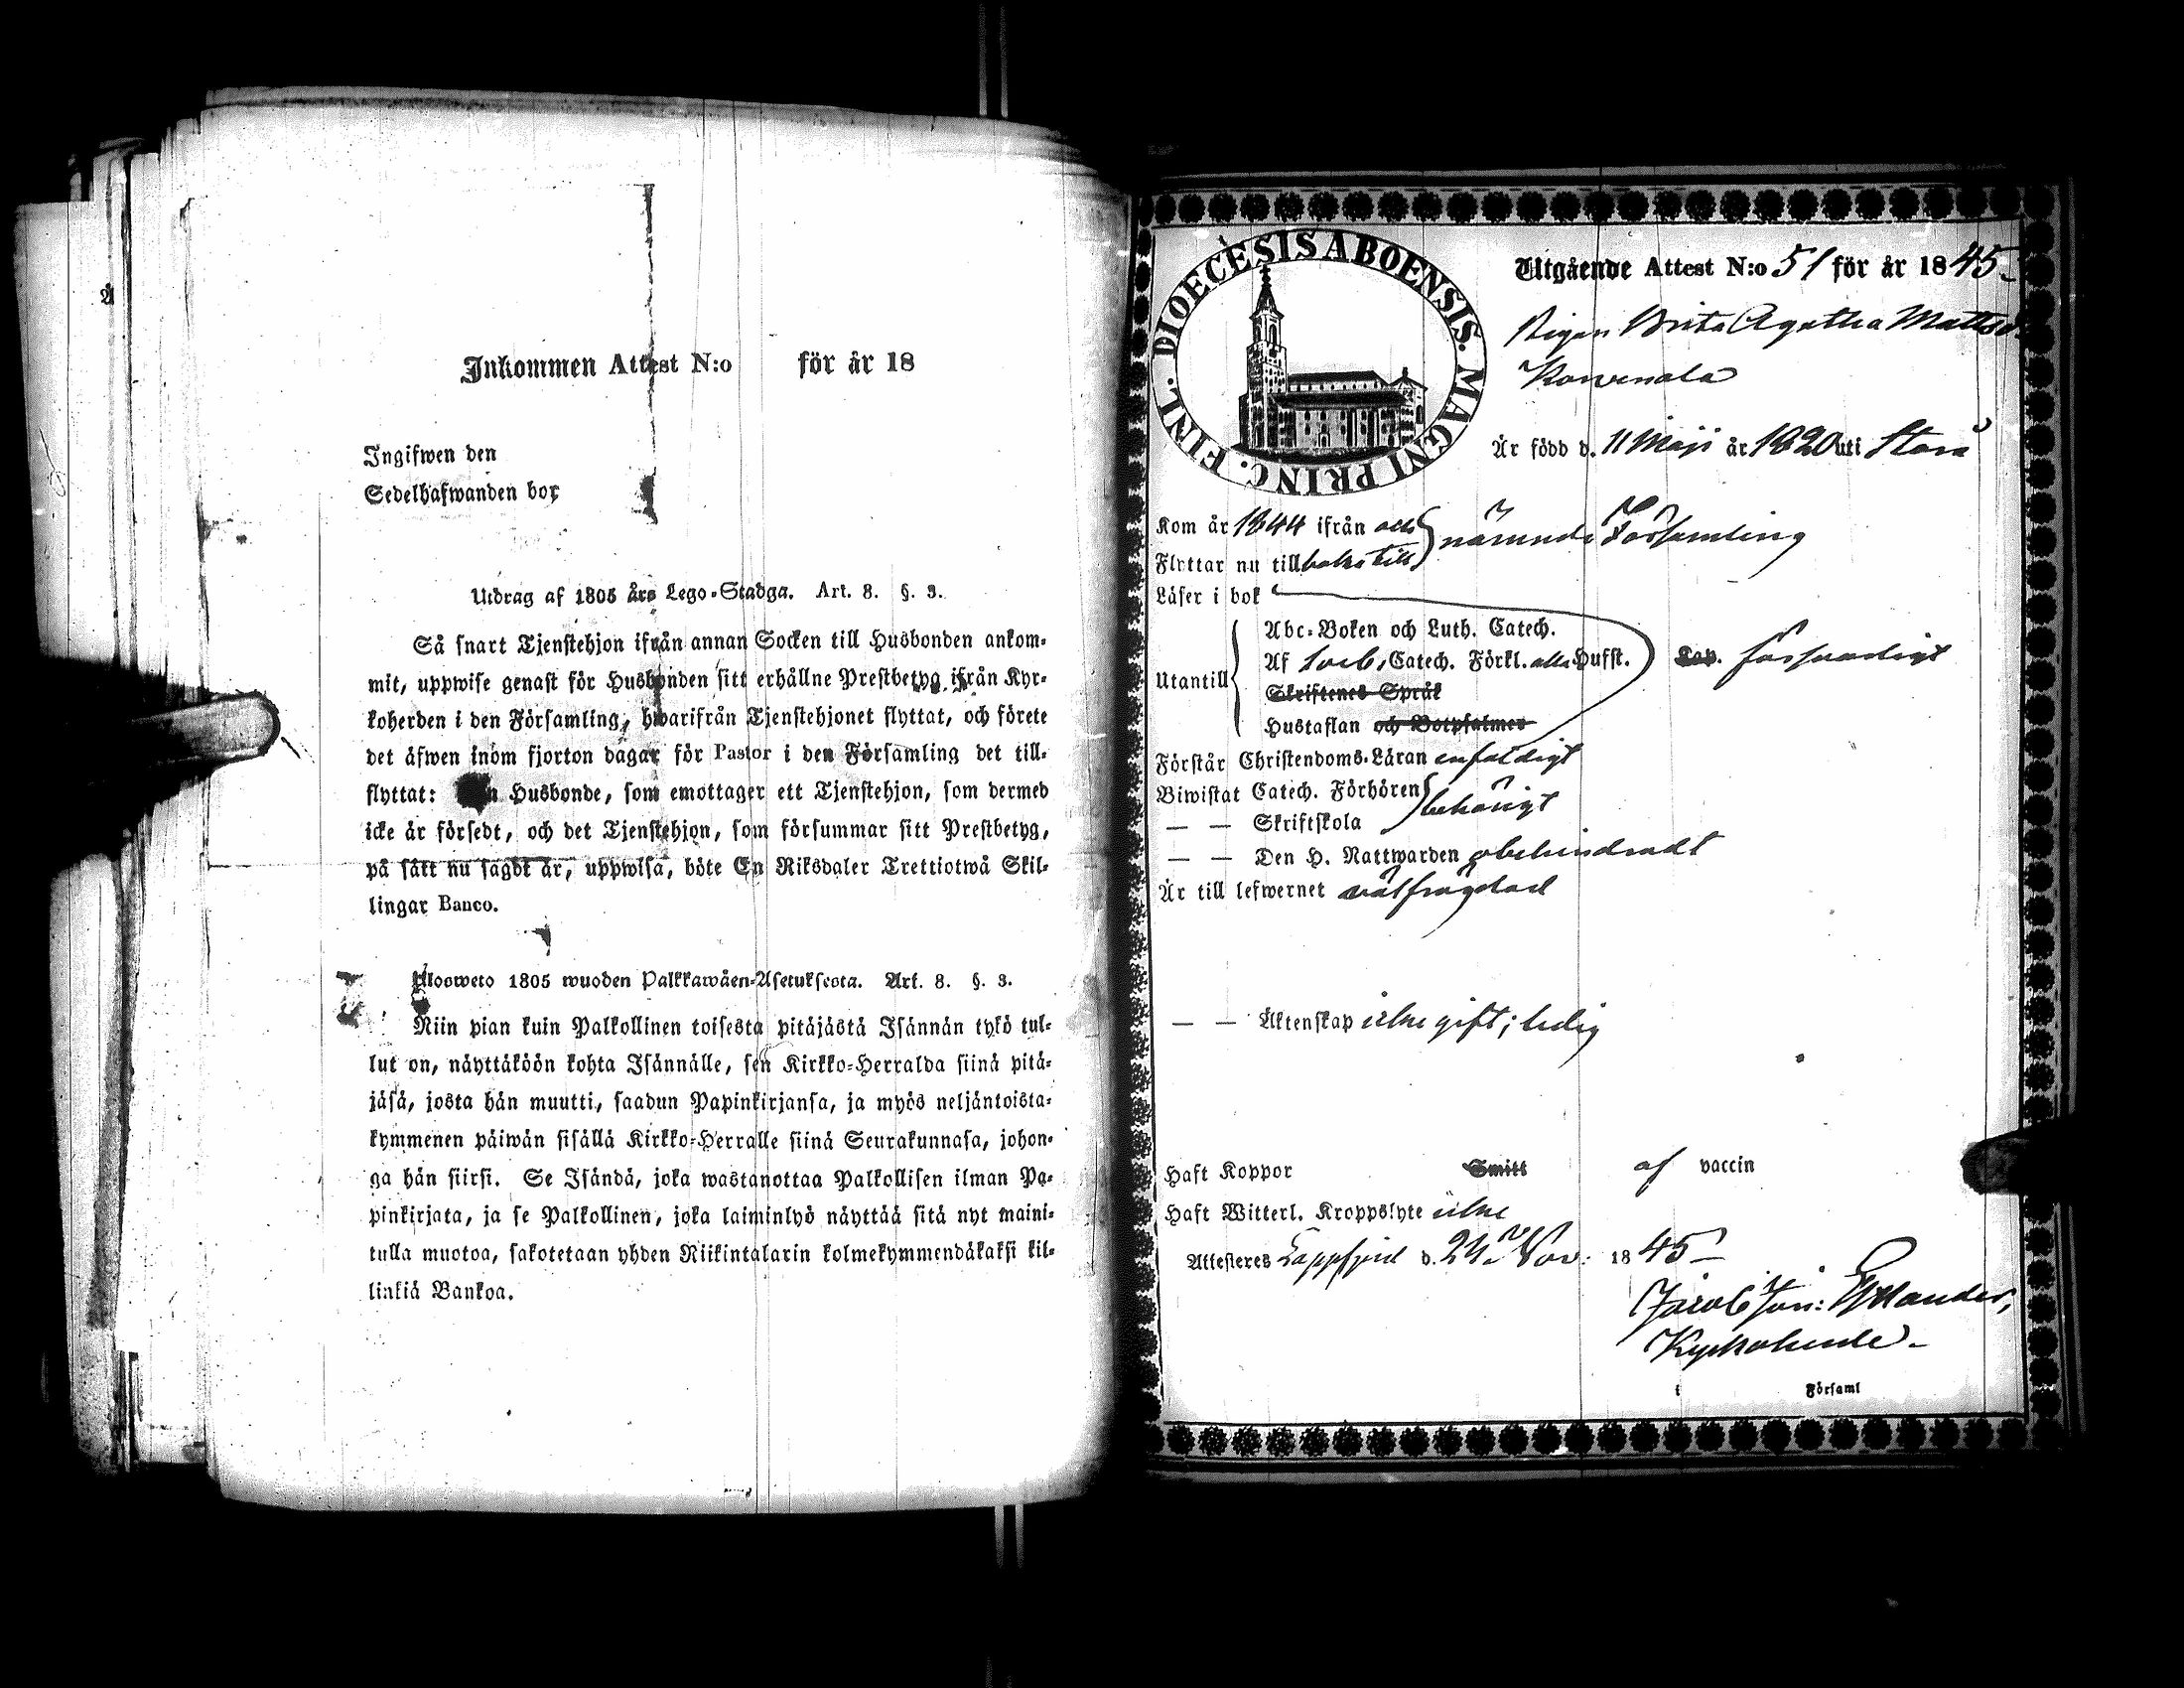 Inkommen Attest N:o för år 18
Ingifwen den
Sedelhafwanden bor
Utdrag af 1805 års Lego-Stadga. Art. 8. §. 3.
Så snart Tjenstehjon ifrån annan Socken till Husbonden ankom-
mit, uppwise genast för Husbonden sitt erhållne Prestbetyg ifrån Kyr-
koherden i den Församling, hwarifrån Tjenstehjonet flyttat, och förete
det äfwen inom fjorton dagar för Pastor i den Församling det till-
flyttat: Husbonde, som emottager ett Tjenstehjon, som dermed
icke är försedt, och det Tjenstehjon, som försummar sitt Prestbetyg,
på sätt nu sagdt är, uppwisa, böte En Riksdaler Trettiotwå Skil-
lingar Banco.
Ulosweto 1805 wuoden Palkkawäen-Asetuksesta. Art. 8. §. 3.
Niin pian kuin Palkollinen toisesta pitäjästä Isännän tykö tul-
lut on, näyttäköön kohta Isännälle, sen Kirkko-Herralda siinä pitä-
jäsä, josta hän muutti, saadun Papinkirjansa, ja myös neljäntoista-
kymmenen päiwän sisällä Kirkko-Herralle siinä Seurakunnasa, johon-
ga hän siirsi. Se Isändä, joka wastanottaa Palkollisen ilman Pa-
pinkirjata, ja se Palkollinen, joka laiminlyö näyttää sitä nyt maini-
tulla muotoa, sakotetaan yhden Riikintalarin kolmekymmendäkaksi kil-
linkiä Bankoa.
DIOECESIS ABOENSIS. MAGNI PRINC. FINL.
Utgående Attest N:o 51 för år 1845
Pigan Brita Agatha Mattsd.
Är född d. 11 Maji år 1820 uti Storå
Kom år 1844 ifrån och
Flyttar nu till baka till nämnde Församling
Läser i bok
Utantill
Abc-Boken och Luth. Catech.
Af Catech. Förkl. alla Hufst. Cap. försvarligt
Skriftenes Språk
Hustaflan och Botpsalmer
Förstår Christendoms-Läran enfaldigt
Biwistat Catech. Förhören behörigt
— — Skriftskola
— — Den H. Nattwarden obehindradt
Är till lefwernet välfrägdad
— — Äktenskap icke gift; ledig
Haft Koppor Smitt af vaccin
Haft Witterl. Kroppslyte icke
Attesteres Lappfjerd d. 24 Nov: 1845
Jacob Jon:
Kyrkoherde.
i Församl